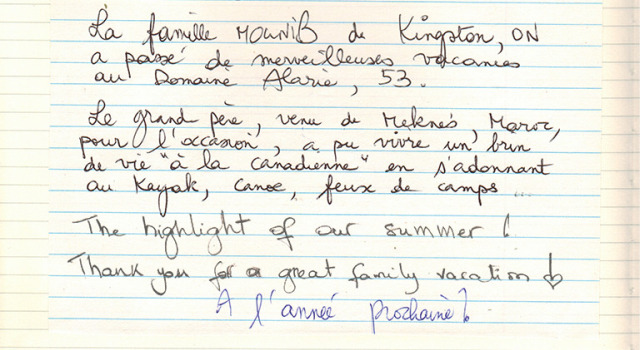 La famille MOUNIB de Kingston, ON
a passé de merveilleuses vacances
au Domaine Alarie, 53.
Le grand père, venu de Meknès, Maroc,
pour l'occasion, a pu vivre un brin
de vie "à la canadienne" en s'adonnant
au Kayak, canoe, feux de camps...
The highlight of our summer!
Thank you for a great family vacation
A l'année prochaine!